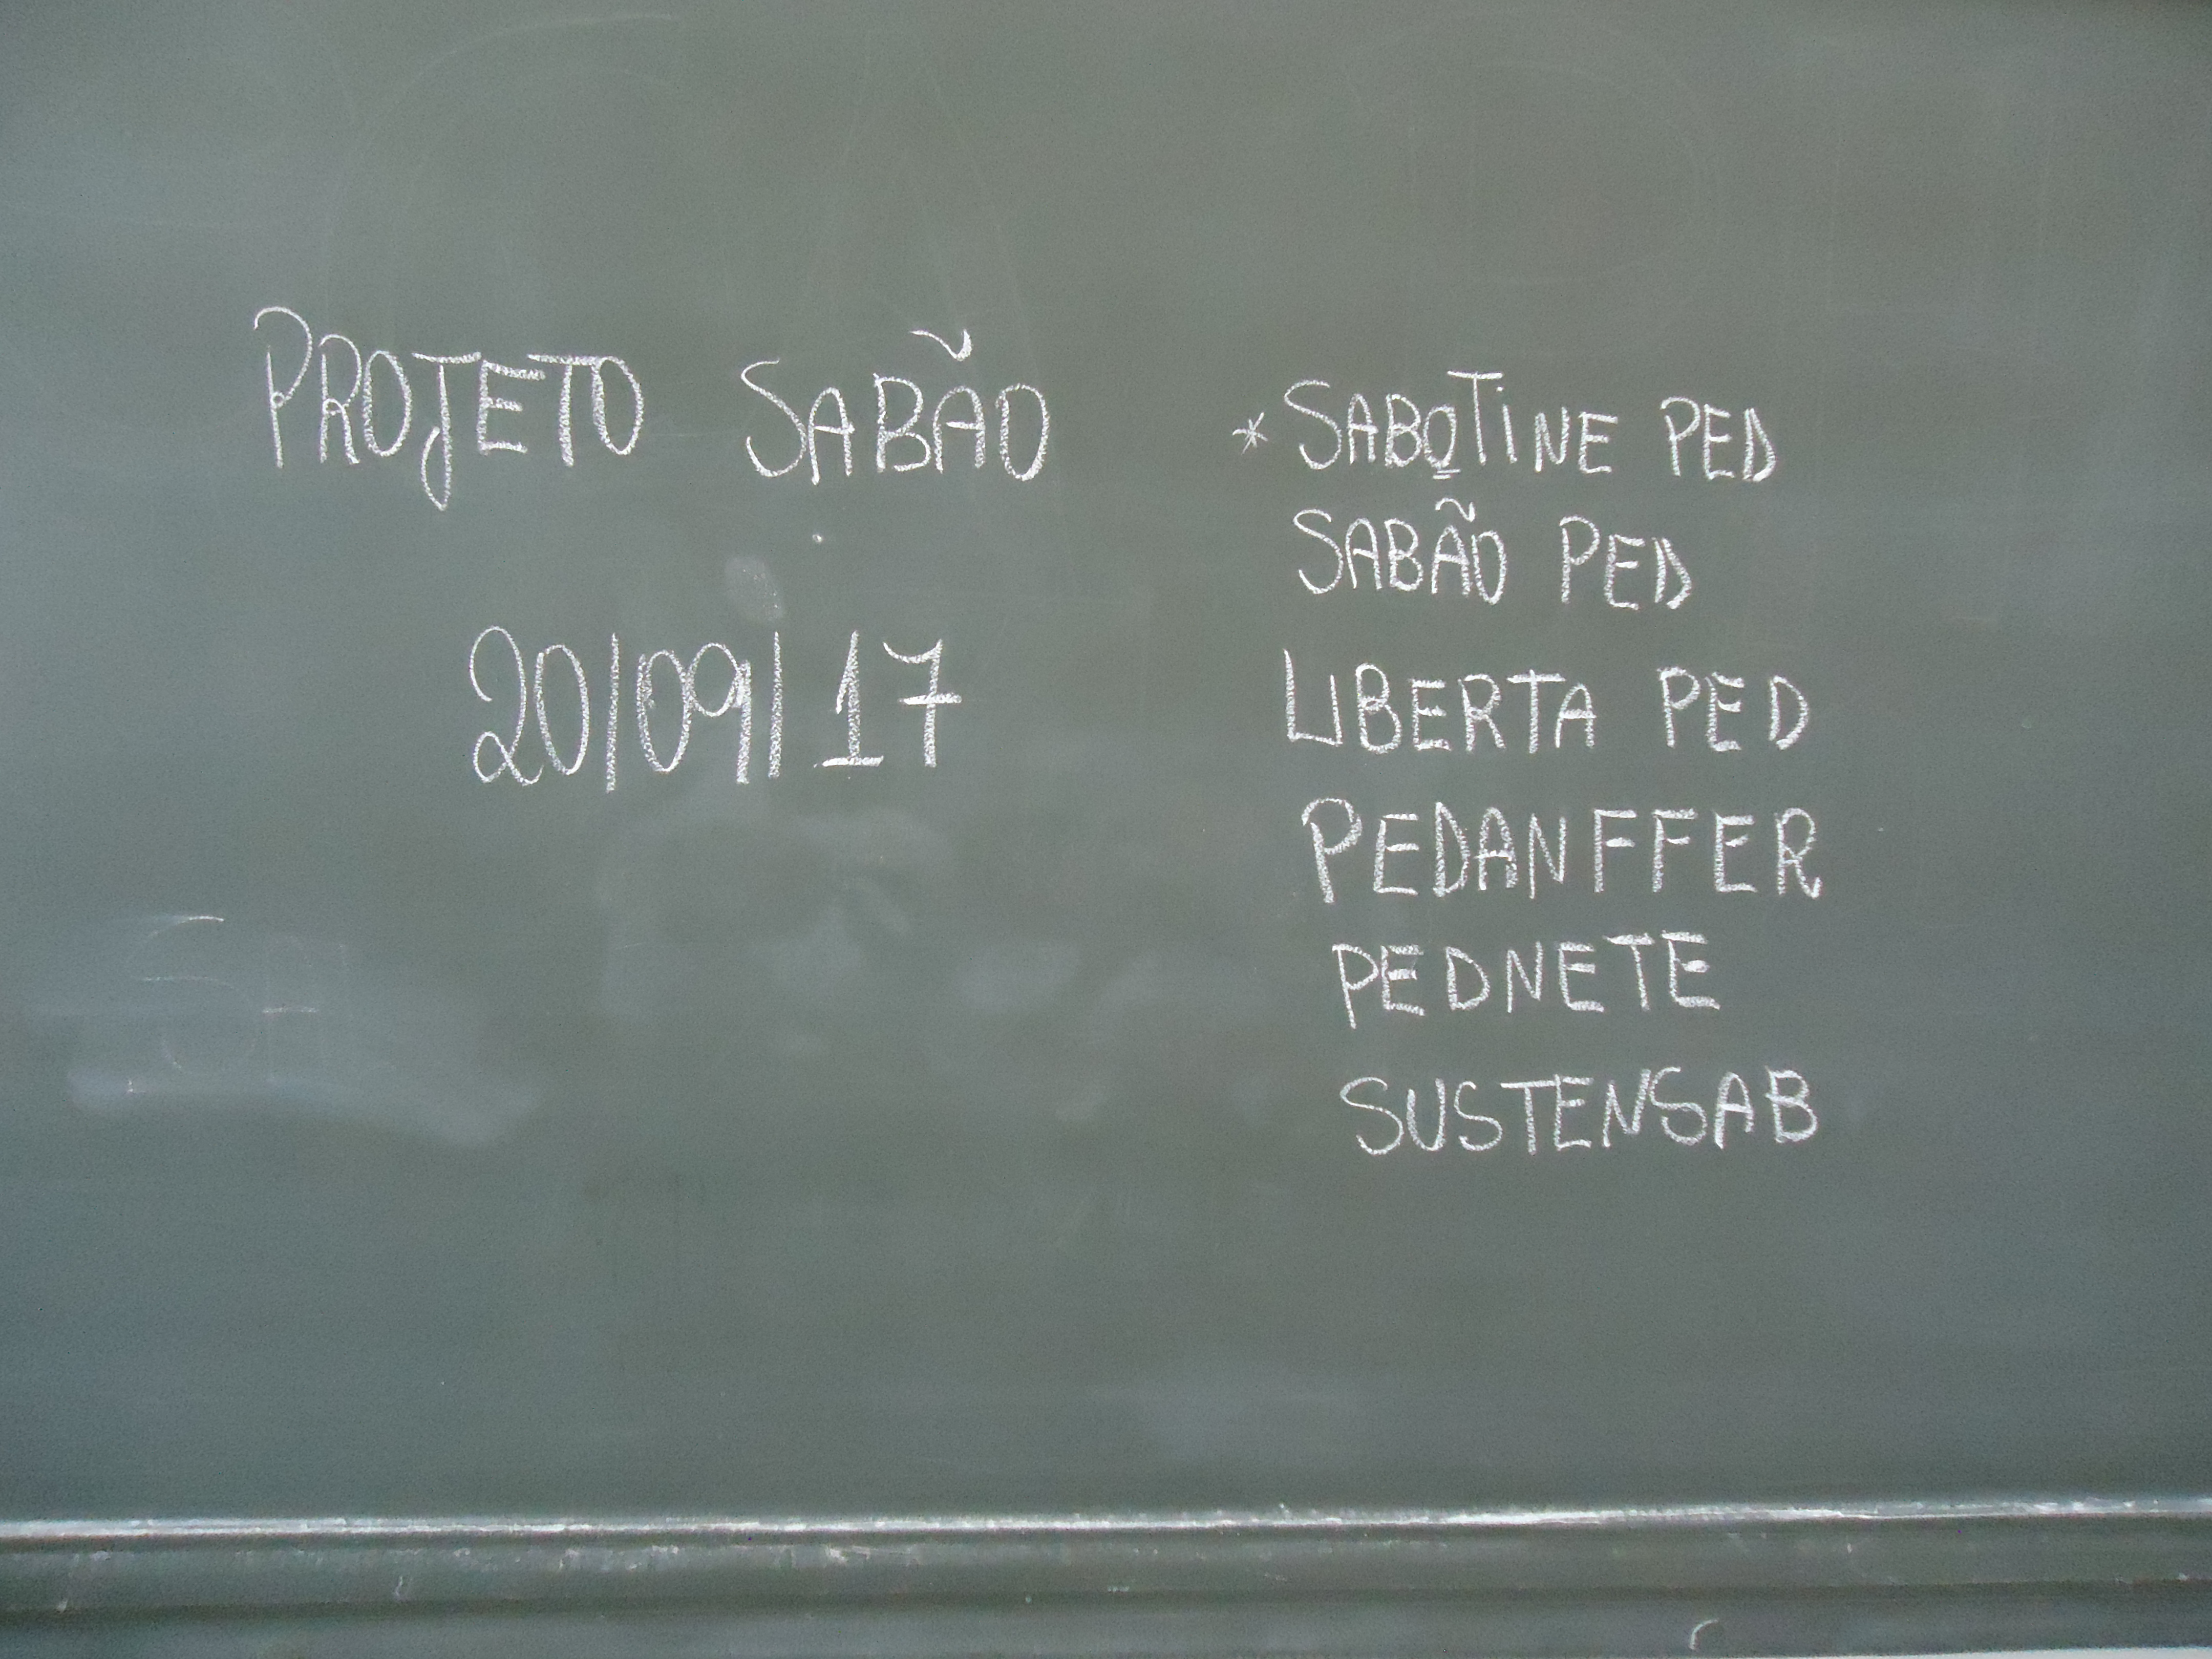 PROJETO SABÃO
20/09/17
* SABOTINE PED
SABÃO PED
LIBERTA PED
PEDANFFER
PEDNETE
SUSTENSAB